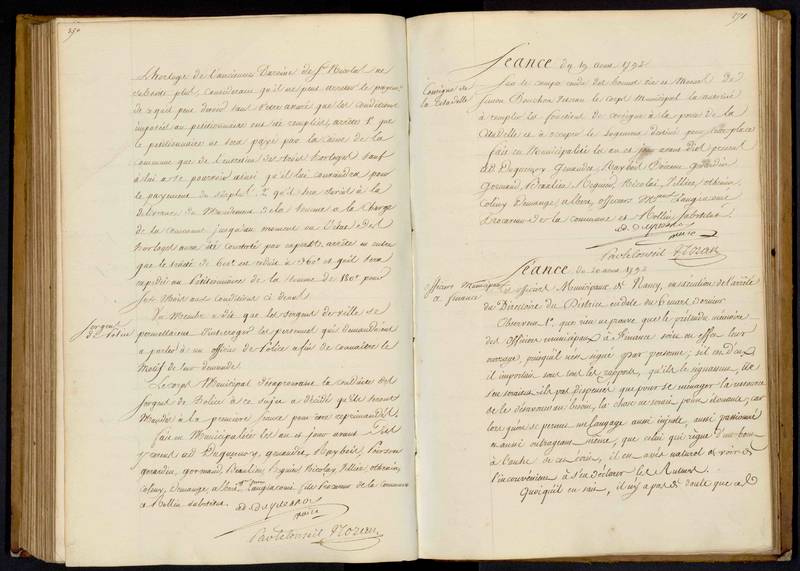 350
L'horloge de l'ancienne Paroisse de St Nicolas ne
plus, considérant qu'il ne peut arreter le payem.
de ce qui peut devoir sans s'etre assuré que les conditions
imposées au petitionnaire ont été remplies, arrête 1° que
le petitionnaire ne sera payé par la Caisse de la
Commune que de l'entretien des trois horloges sauf
à lui a se pourvoir ainsi qu'il lui conviendra pour
le payement du surplus 2° qu'il sera sursis à la
délivrance du Mandement de la somme a la Charge
de la Commune jusqu'au moment ou l'état des
horloges aura été constaté par experts, arrête en outre
que le traité de 600# est reduit à 360# et qu'il sera
expédié au Petitionnaire de la somme de 180# pour
six Mois aux Conditions ci dessus.
Sergens
de Police
Un Membre a dit que les Sergens de ville se
permettaient d'interroger les personnes qui demandoient
a parler à un officier de Police afin de connaître le
Motif de leur demande.
Le corps Municipal désaprouvant la conduite des
Sergens de Police à ce sujet a décidé qu'ils seront
Mandés à la première séance pour être réprimandés.
fait en Municipalité les an et jour avant dits
présent MM Duquesnoy, genaudet, Raybois, Poirson
gerardin, gormand, Beaulieu, Seguin, Nicolay, Villier, othenin,
Coliny, Demange, albert, Mrs langiacomé, file Procureur de la Commune
et Rollin substitut.
A. Duquesnoy
maire
Par le Conseil Nozan
351
Séance du 19 aoust 1792
Consigne de
la Citadelle
Sur le compte rendu des bonnes vie et Moeurs de
Simon Bouchon Veteran le Corps Municipal l'a autorisé
à remplir les fonctions de consigne à la porte de la
Citadelle et à occuper le logement destiné pour cette place
fait en Municipalité les an et jour avant dits présent
MM Duquesnoy Genaudet, Raybois, Poirson, gerardin
Gormand, Beaulieu, Seguin, Nicolai, Villier, othenin,
Coliny, Demange, albert, officiers Mpaux Langiacomé
Procureur de la commune et Rollin substitut
A. Duquesnoy
maire
Par le Conseil Nozan
Séance du 20 aout 1792
Officiers Municipaux
à finance
Les officiers Municipaux de Nancy, en exécution de l'arrêté
du Directoire du District en date du 6 mars dernier
Observent 1° que rien ne prouve que le prétendu mémoire
des Officiers municipaux à finance soit en effet leur
ouvrage, puisqu'il n'est signé par personne; s'il est d'eux
il importait sous tous les rapports, qu'ils le signassent, ils
s'en seraient-ils pas dispensés que pour se ménager la ressource
de le désavouer au besoin, la chose ne serait point étonnante, car
lors qu'on se permet un langage aussi injuste, aussi passionné
et aussi outrageant même, que celui qui règne d'un bout
à l'autre de cet écrit, il est assés naturel de voir de
l'inconvenient à s'en déclarer les Auteurs.
Quoiqu'il en soit, il n'y a pas de doute que ce